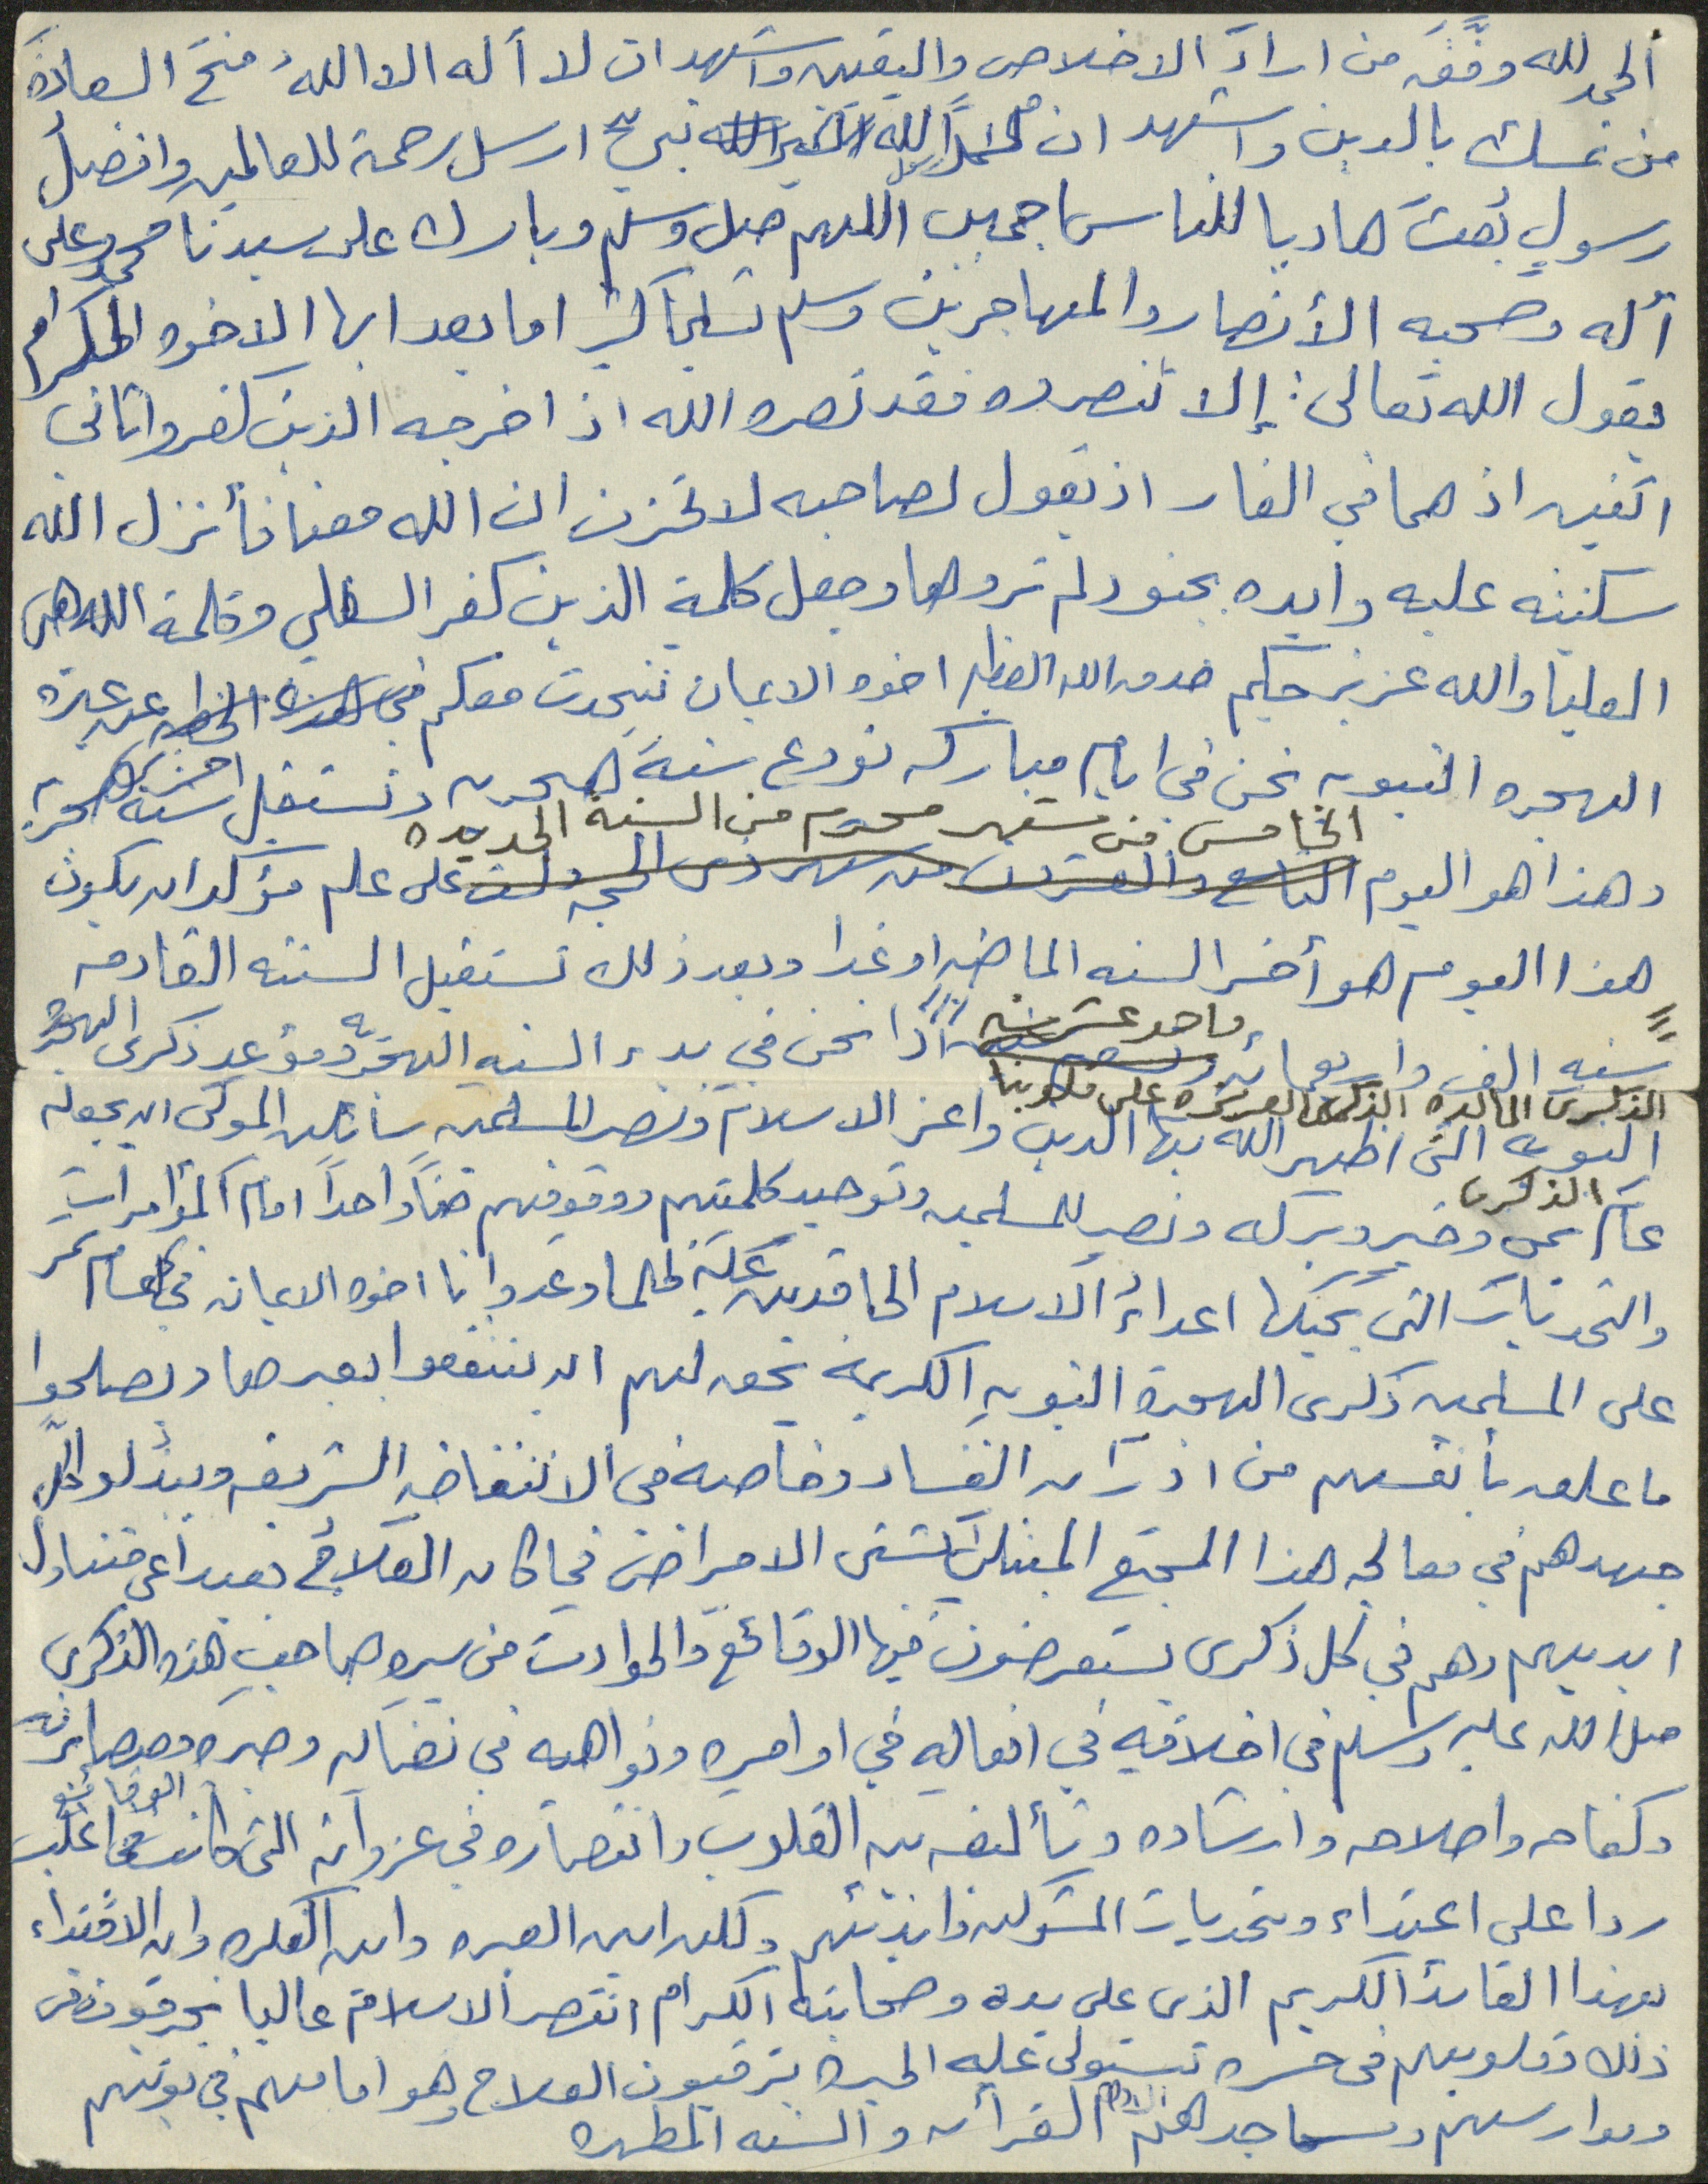 الحمد لله وفَّقَ من اراد الاخلاص واليقين واشهد ان لا آله الا اللهُ منح السعادةَ
من تمسك بالدين واشهد ان محمداً رسول الله نبيٌ ارسل رحمة للعالمين وافضلُ
رسولٍ بُعثَ هاديا للناس اجمعين اللهم صل وسلم وبارك على سيدنا محمد وعلى
آله وصحبه الأنصار والمهاجرين وسلم تسليما كثيرا اما بعد ايها الاخوه الكرام
يقول الله تعالى: إلا تنصروه فقد نصره الله اذ اخرجه الذين كفروا ثاني
اثنين اذ هما في الغار اذ يقول لصاحبه لا تحزن ان الله معنا فأنزل الله
سكينته عليه وايده بجنود لم تروها وجعل كلمة الذين كفر السفلي وكلمة الله هي
العليا والله عزيز حكيم صدق الله العظيم اخوه الايمان نتحدث معكم في هذه الخطبه عن عبرة
الهجره النبويه نحن في ايام مباركه نودع سنة هجريه ونستقبل سنة اخرى هجريه
الخامس من شهر محرم من السنة الجديده
وهذا هو اليوم التاسع والعشرون من شهر ذي الحجه ولست على علم مؤكد ان يكون
هذا اليوم هو أخر السنه الماضيه او غدا وبعد ذلك نستقبل السنته القادمه
سنه الف واربعمائه واحد عشر اذا نحن في بدء السنه الهجريه وموعد ذكرى الهجرة
الذكرى الخالده الذكرى العزيزه على قلوبنا
النبويه التي اظهر الله بها الدين واعز الاسلام ونصر المسلمين سائلين المولى ان يجعله
الذكرى
عام يمن وخير وبركه ونصر للمسلمين وتوحيد كلمتهم ووقوفهم صفاً واحداً امام المؤامرات
والتحديات التي يحيكها اعداءُ الاسلام الحاقدين عليه ظلما وعدوانا اخوه الايمان في كل عام تمر
على المسلمين ذكرى الهجرة النبويهِ الكريمه يحق لهم ان ينتفعوا بعبرها ويصلحوا
ما علق بأنفسهم من ادران الفساد وخاصه في الانتفاضه الشريفه ويبذلو كلَّ
جهدهم في معالجه هذا المجتمع المبتلى بشتى الامراض فما كان العلاجُ بعيدا عن متناول
ايديهم وهم في كل ذكرى يستعرضون فيها الوقائع والحوادث من سيره صاحبِ هذه الذكرى
صلى الله عليه وسلم في اخلاقيه في افعاله في اوامره ونواهيه في نضاله وصبره ومصابرته
الوقائع
وكفاحه واصلاحه وارشاده وتأليفه بين القلوب وانتصاره في غزواته التي كانت في اغلب
ردا على اعتداء وتحديات المشركين واذيتهم ولكن اين العبره واين الفكره واين الاقتداء
بهذا القائد الكريم الذي على يده وصحابته الكرام انتصر الاسلام عاليا
ذلك وقلوبهم في حسره تستولى عليه الحيره يترقبون العلاج وهو امامهم في بيوتهم
ومدارسهم ومساجدهم القرأن والسنه المطهره